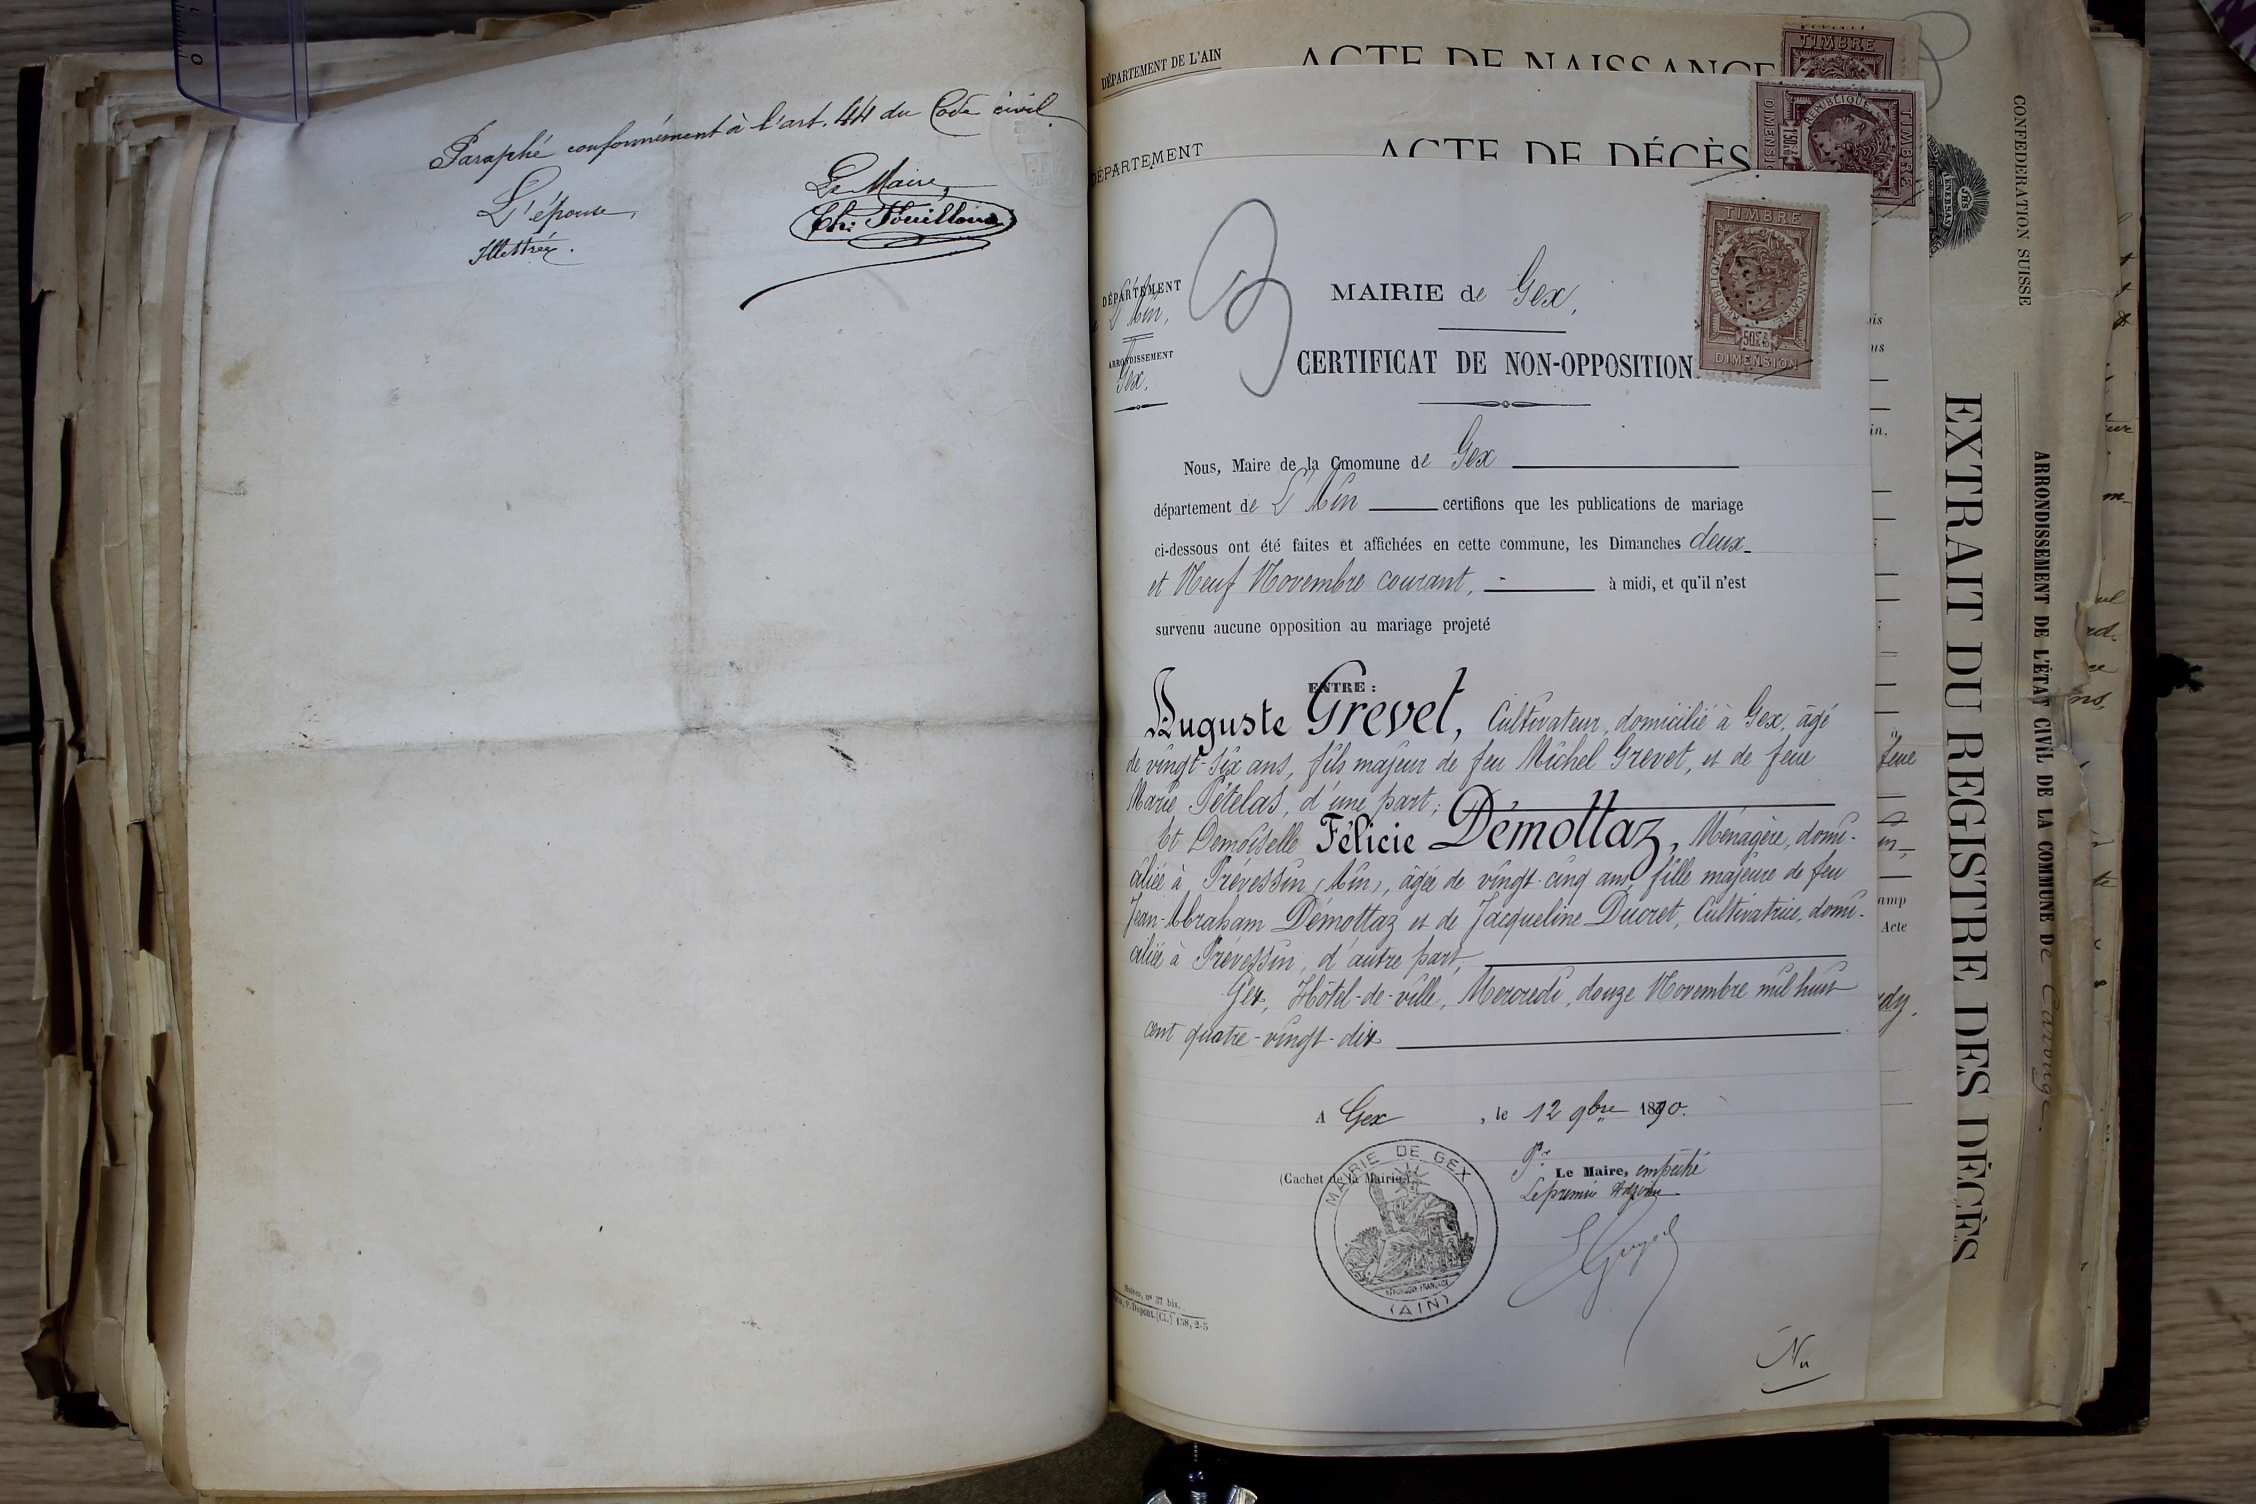 Paraphé conformément à l'art. 44 du Code civil.
L'épouse,
Illettrée.
Le Maire,
Ch: Fouilloux
DÉPARTEMENT DE L'AIN
ACTE DE NAISSANCE
TIMBRE
DÉPARTEMENT
ACTE DE DÉCÈS
DIMENSION
RÉPUBLIQUE
TIMBRE
DÉPARTEMENT
de L'Ain,
ARRONDISSEMENT
Gex.
3
MAIRIE de Gex,
CERTIFICAT DE NON-OPPOSITION
TIMBRE
RÉPUBLIQUE FRANÇAISE
DIMENSION
Nous, Maire de la Cmomune de Gex
département de L'Ain certifions que les publications de mariage
ci-dessous ont été faites et affichées en cette commune, les Dimanches deux
et Neuf Novembre courant, à midi, et qu'il n'est
survenu aucune opposition au mariage projeté
ENTRE :
Auguste Grevet, Cultivateur, domicilié à Gex, âgé
de vingt-six ans, fils majeur de feu Michel Grevet, et de feue
Marie Pételas, d'une part;
Et Demoiselle Félicie Démottaz, Ménagère, domi-
ciliée à Prévessin (Ain), âgée de vingt-cinq ans, fille majeure de feu
Jean-Abraham Démottaz et de Jacqueline Ducret, Cultivatrice, domi-
ciliée à Prévessin, d'autre part,
Gex, Hôtel-de-ville, Mercredi, douze Novembre mil huit
cent quatre-vingt-dix
A Gex, le 12 9bre 1890.
(Cachet de la Mairie.)
MAIRIE DE GEX
RÉPUBLIQUE FRANÇAISE
(AIN)
Pr. Le Maire, empêché
Le premier Adjoint
Nu
feue
amp
Acte
EXTRAIT DU REGISTRE DES DÉCÈS
CONFÉDÉRATION SUISSE
ARRONDISSEMENT DE L'ÉTAT CIVIL DE LA COMMUNE De Carouge.